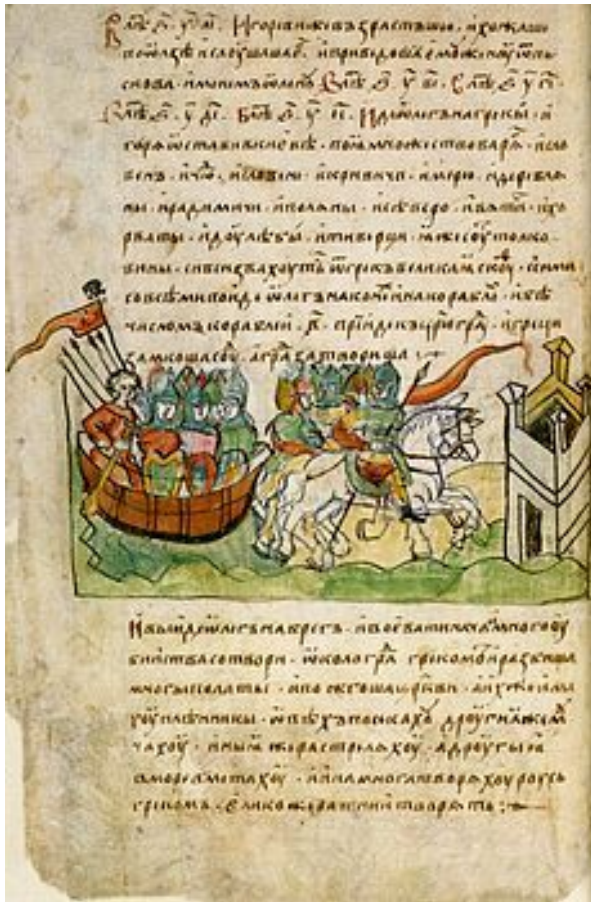 В лѣⷮ ҂ѕ҃ у҃ а҃і. Игореви же възрастъшю. и хожаше
по ѡлзѣ и слоушашеⷮ. и приведоша емоу женоу ѿ пь
скова именемъ ѡленоу В лѣⷮ ҂ѕ҃ у҃ в҃і. В лѣⷮ ҂ѕ҃ у҃ г҃і.
В лѣⷮ ҂ѕ҃ у҃ д҃і. В лѣⷮ ҂ѕ҃ у҃ е҃і. Иде ѡлегъ на грекы. и
горѧ ѡстави в киевѣ. поѧ множество варѧⷢ. и сло
венъ. и чюⷣ. и словени. и кривичи. и мерю. и деревлѧ
ны. и радимичи. и полѧны. и севѣро. и вѧтиⷱ. и хо
рваты. и доулѣбы. и тиверци. ꙗже соуⷮ толко
вины. си вси звахоутⷭь ѿ грекъ великаꙗ скоуⷴ. сѣми
со всѣми поиде ѡлегъ на конеⷯ и на кораблѧⷯ. и бѣ
числомъ кораблеи. ҂в҃. прїиде къ цр҃юграⷣ. и греци
замкоша соуⷣ. а граⷣ затвориша
И выиде ѡлегъ на брегъ. и воевати нача. и много оу
бииства сотвори. ѡколо граⷣ грекомъ. и разбиша
многы полаты. и пожгоша цр҃кви. а иⷯ же има
хоу плѣнникы. ѡвѣхъ посѣкахоу. дроугиꙗ же моуⷱ
чахоу. иныꙗ же растрелѧхоу. а дроугыꙗ
в море вметахоу. и ина многа творѧхоу роусь
грекомъ. елико же ратнии творѧть :~